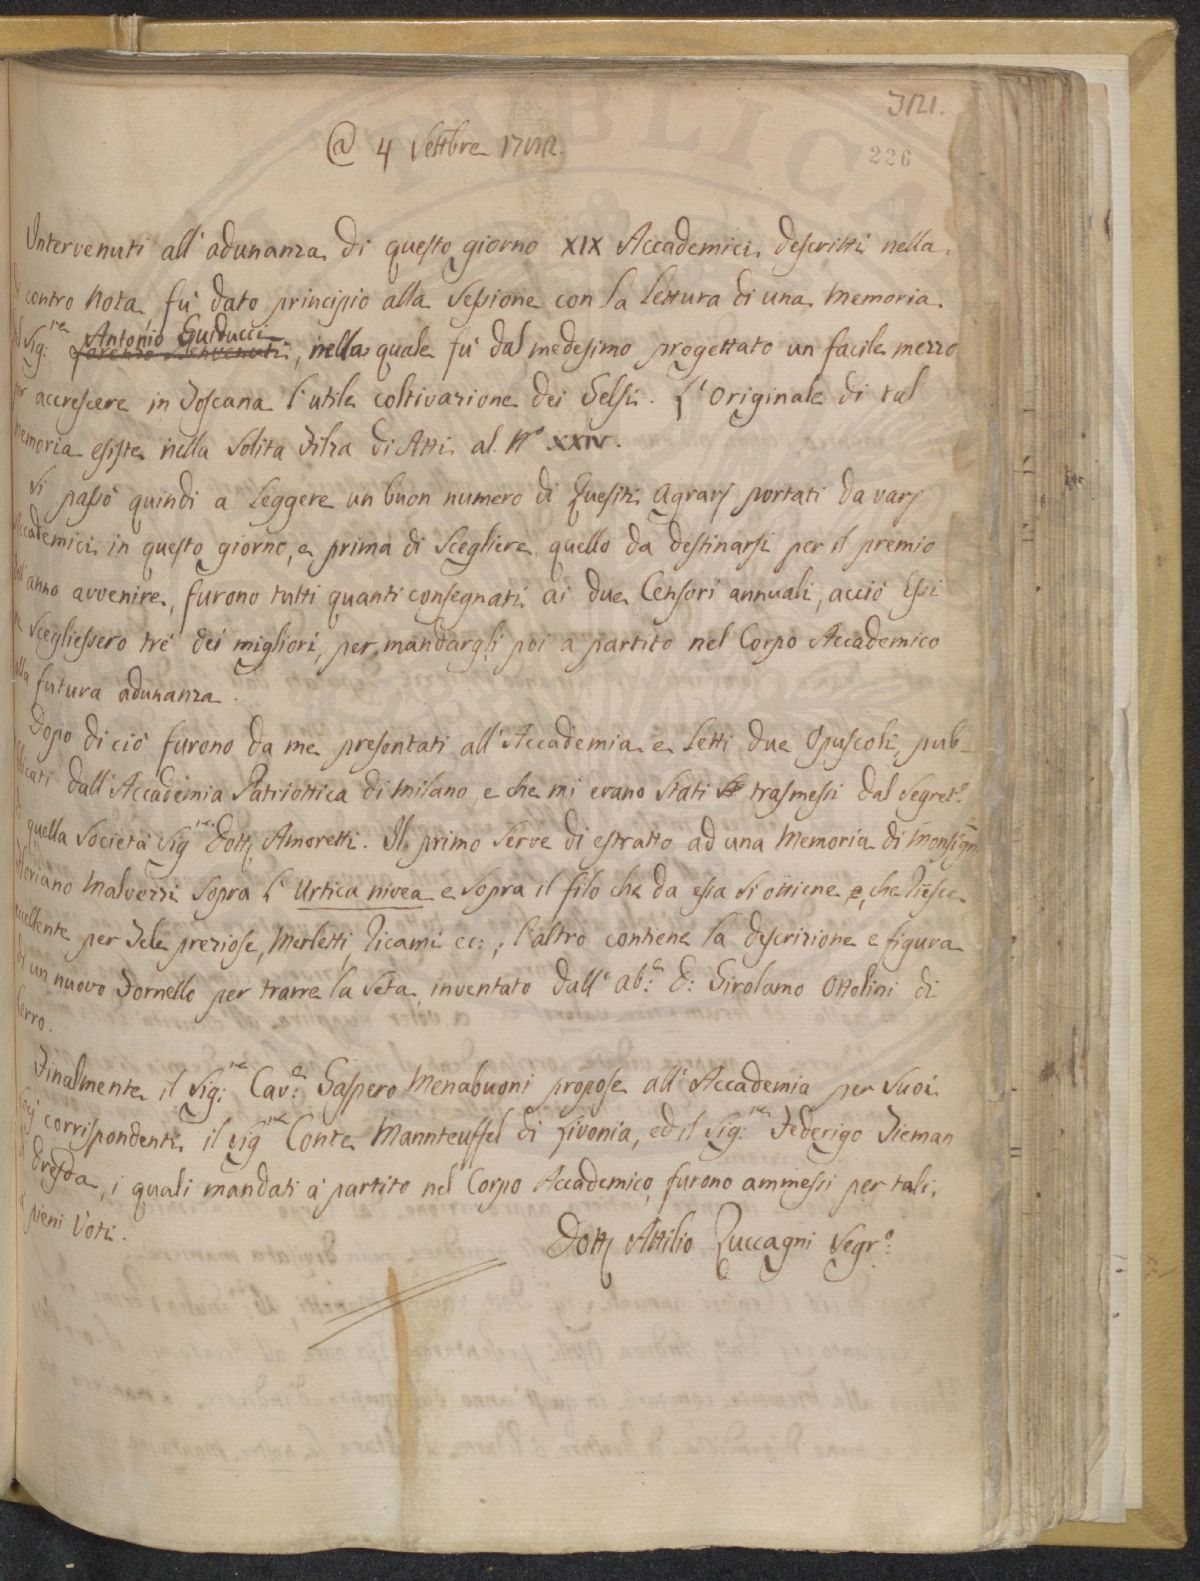 226
@ 4 Settbre
Intervenuti all' adunanza di questo giorno XIX Accademici descritti nella
contro nota fu' dato principio alla Sessione con la lettura di una Memoria
Sig:re Antonio Guiducci, nella quale fu' dal medesimo progettato un facile mezzo
accrescere in Toscana l'utile coltivazione dei Gelsi. L'Originale di tal
memoria esiste nella solita Filza di Atti al N° XXIV.
Si passò quindi a leggere un buon numero di Quesiti agrarj portati da varj
Accademici in questo giorno, e prima di scegliere quello da destinarsi per il premio
dell' anno avvenire, furono tutti quanti consegnati ai due Censori annuali, acciò Essi
ne scegliessero tre' dei migliori, per mandargli poi a partito nel Corpo Accademico
alla futura adunanza.
Dopo di ciò furono da me presentati all' Accademia e letti due Opuscoli, pub-
blicati dall' Accademia Patriottica di Milano, e che mi erano stati trasmessi dal Segret.o
di quella Società Sig.re Dott. Amoretti. Il primo serve di estratto ad una Memoria di Monsign.
Floriano Malvezzi sopra l' Urtica nivea e sopra il filo che da essa si ottiene, che riesce
eccellente per Tele preziose, Merletti, ricami ec:; l'altro contiene la descrizione e figura
di un nuovo Fornello per trarre la Seta, inventato dall' Ab:e D: Girolamo Ottolini di
Cerro.
Finalmente il Sig:re Cav:e Gaspero Menabuoni propose all' Accademia per suoi
Socj corrispondenti il Sig.re Conte Mannteuffel di Livonia, ed il Sig:re Federigo Tieman
di Dresda, i quali mandati a' partito nel Corpo Accademico, furono ammessi per tali
a pieni Voti.
Dott. Attilio Zuccagni Segr:o